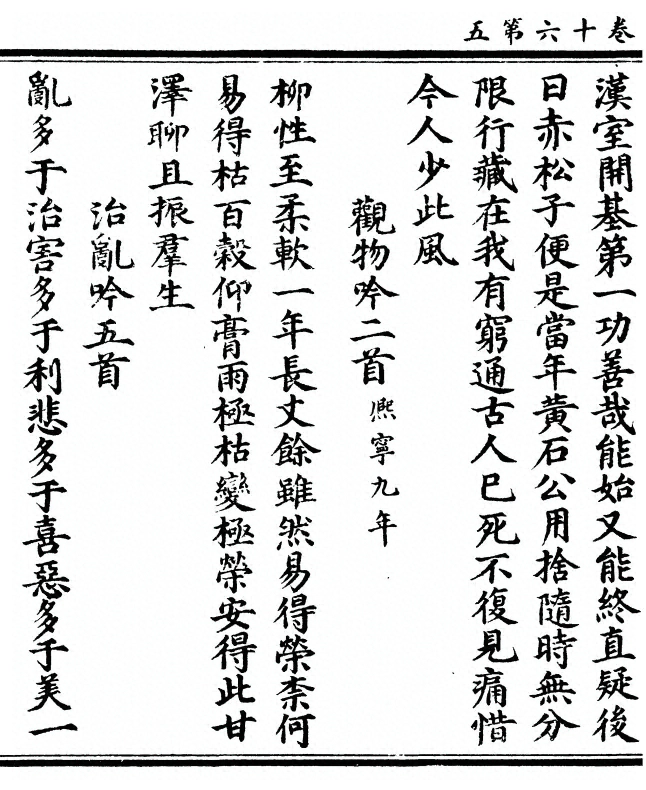 五第六十卷
漢室開基第一功善哉能始又能終直疑後
日赤松子便是當年黃石公用捨隨時無分
限行藏在我有窮通古人已死不復見痛惜
今人少此風
觀物吟二首熈寧九年
柳性至柔軟一年長丈餘雖然易得榮柰何
易得枯百穀仰膏雨極枯變極榮安得此甘
澤聊且振羣生
治亂吟五首
亂多于治害多于利悲多于喜惡多于美一